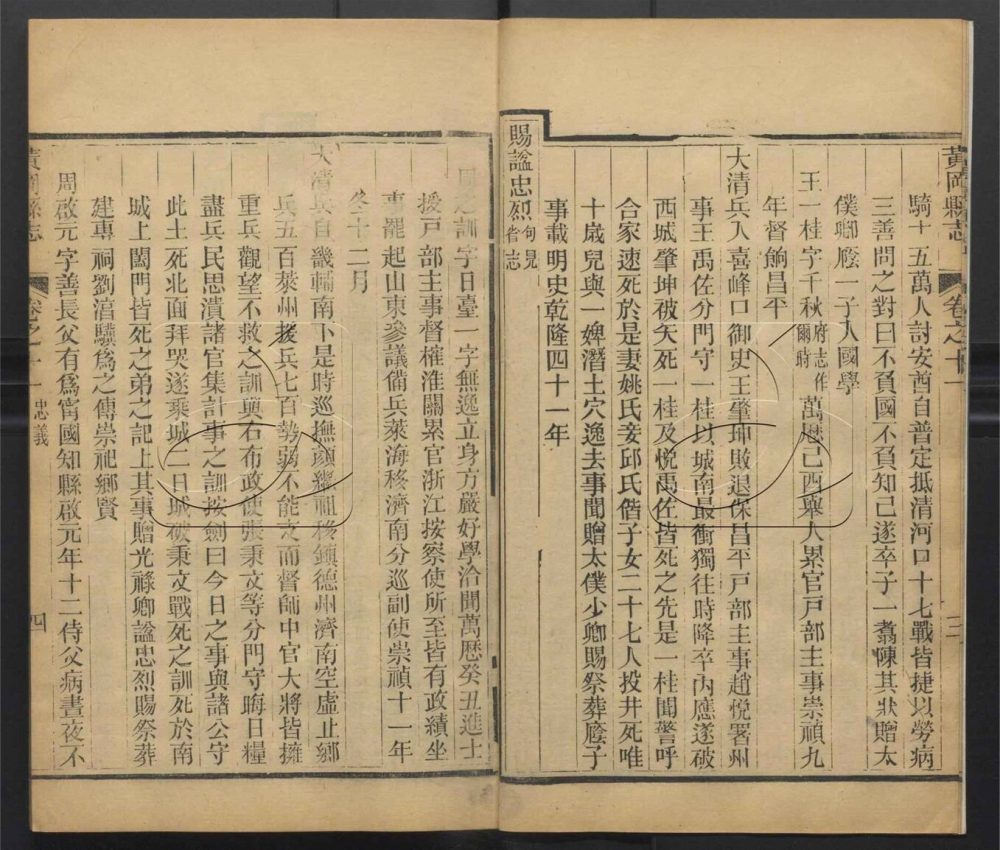 黃岡縣志 卷之十一 三
騎十五萬人討安酋自普定抵清河口十七戰皆捷以勞病
三善問之對曰不負國不負知己遂卒子一翥陳其狀贈太
僕卿廕一子入國學
王一桂字千秋府志作爾時萬歷己酉舉人累官戶部主事崇禎九
年督餉昌平
大清兵入喜峰口御史王肇坤敗退保昌平戶部主事趙悅署州
事王禹佐分門守一桂以城南最衝獨往時降卒內應遂破
西城肇坤被矢死一桂及悅禹佐皆死之先是一桂聞警呼
合家速死於是妻姚氏妾邱氏偕子女二十七人投井死唯
十歲兒與一婢潛土穴逸去事聞贈太僕少卿賜祭葬廕子
事載明史乾隆四十一年
賜諡忠烈句見省志
周之訓字日臺一字無逸立身方嚴好學洽聞萬歷癸丑進士
授戶部主事督榷淮關累官浙江按察使所至皆有政績坐
事罷起山東參議備兵萊海移濟南分巡副使崇禎十一年
冬十二月
大清兵自畿輔南下是時巡撫顏繼祖移鎮德州濟南空虛止鄉
兵五百萊州援兵七百勢弱不能支而督師中官大將皆擁
重兵觀望不救之訓與右布政使張秉文等分門守晦日糧
盡兵民思潰諸官集計事之訓按劍曰今日之事與諸公守
此土死北面拜哭遂乘城二日城破秉文戰死之訓死於南
城上闔門皆死之弟之記上其事贈光祿卿諡忠烈賜祭葬
建專祠劉湆驥為之傳崇祀鄉賢
周啟元字善長父有為甯國知縣啟元年十二侍父病晝夜不
黃岡縣志 卷之十一 忠義 四